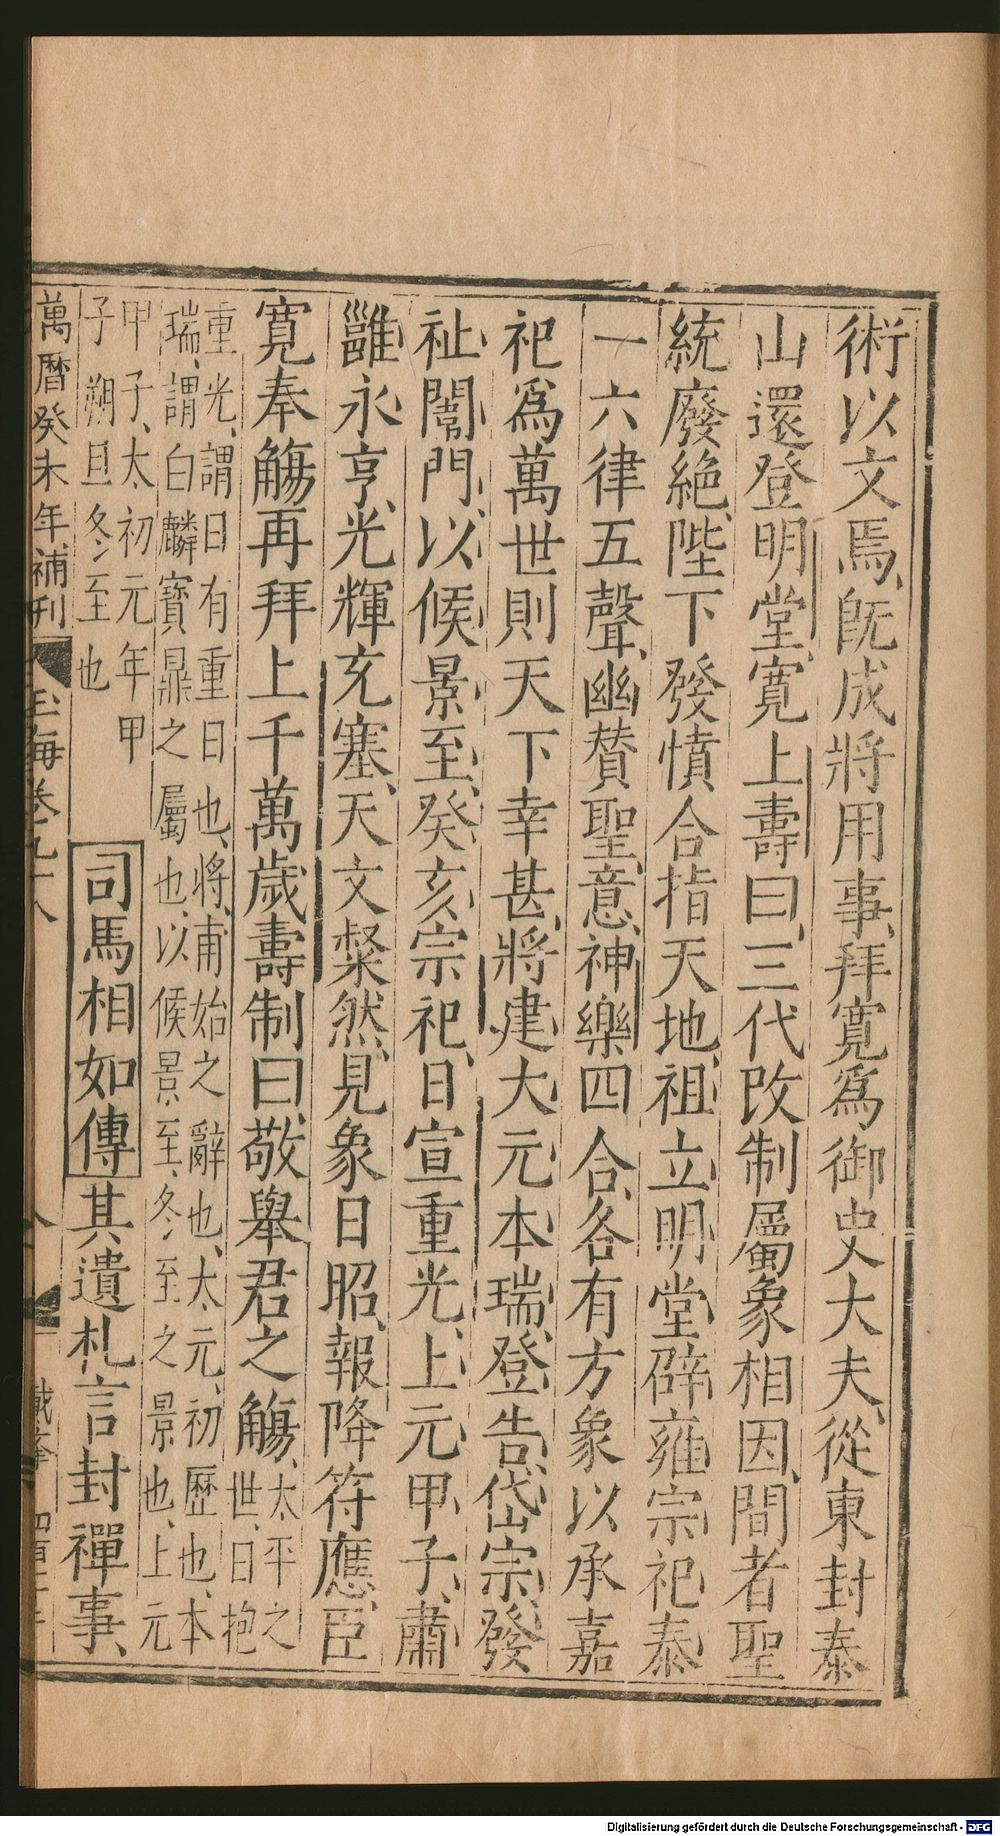 術以文焉既成將用事拜寛爲御史大夫從東封泰
山還登明堂寛上壽曰三代改制屬象相因間者聖
統廢絶陛下發憤合指天地祖立明堂辟雍宗祀泰
一六律五聲幽賛聖意神樂四合各有方象以承嘉
祀爲萬世則天下幸甚將建大元本瑞登告岱宗發
祉闓門以候景至癸亥宗祀日宣重光上元甲子肅
雝永亨光輝充塞天文粲然見象日昭報降符應臣
寛奉觴再拜上千萬歲壽制曰敬舉君之觴
太平之
世日抱
重光謂日有重日也將甫始之辭也太元初歷也本
瑞謂白麟寶鼎之屬也以候景至冬至之景也上元
甲子太初元年甲
子朔旦冬至也
司馬相如傳其遺札言封禪事
萬曆癸未年補刊
玉海卷九十八
Digitalisierung gefördert durch die Deutsche Forschungsgemeinschaft - DFG